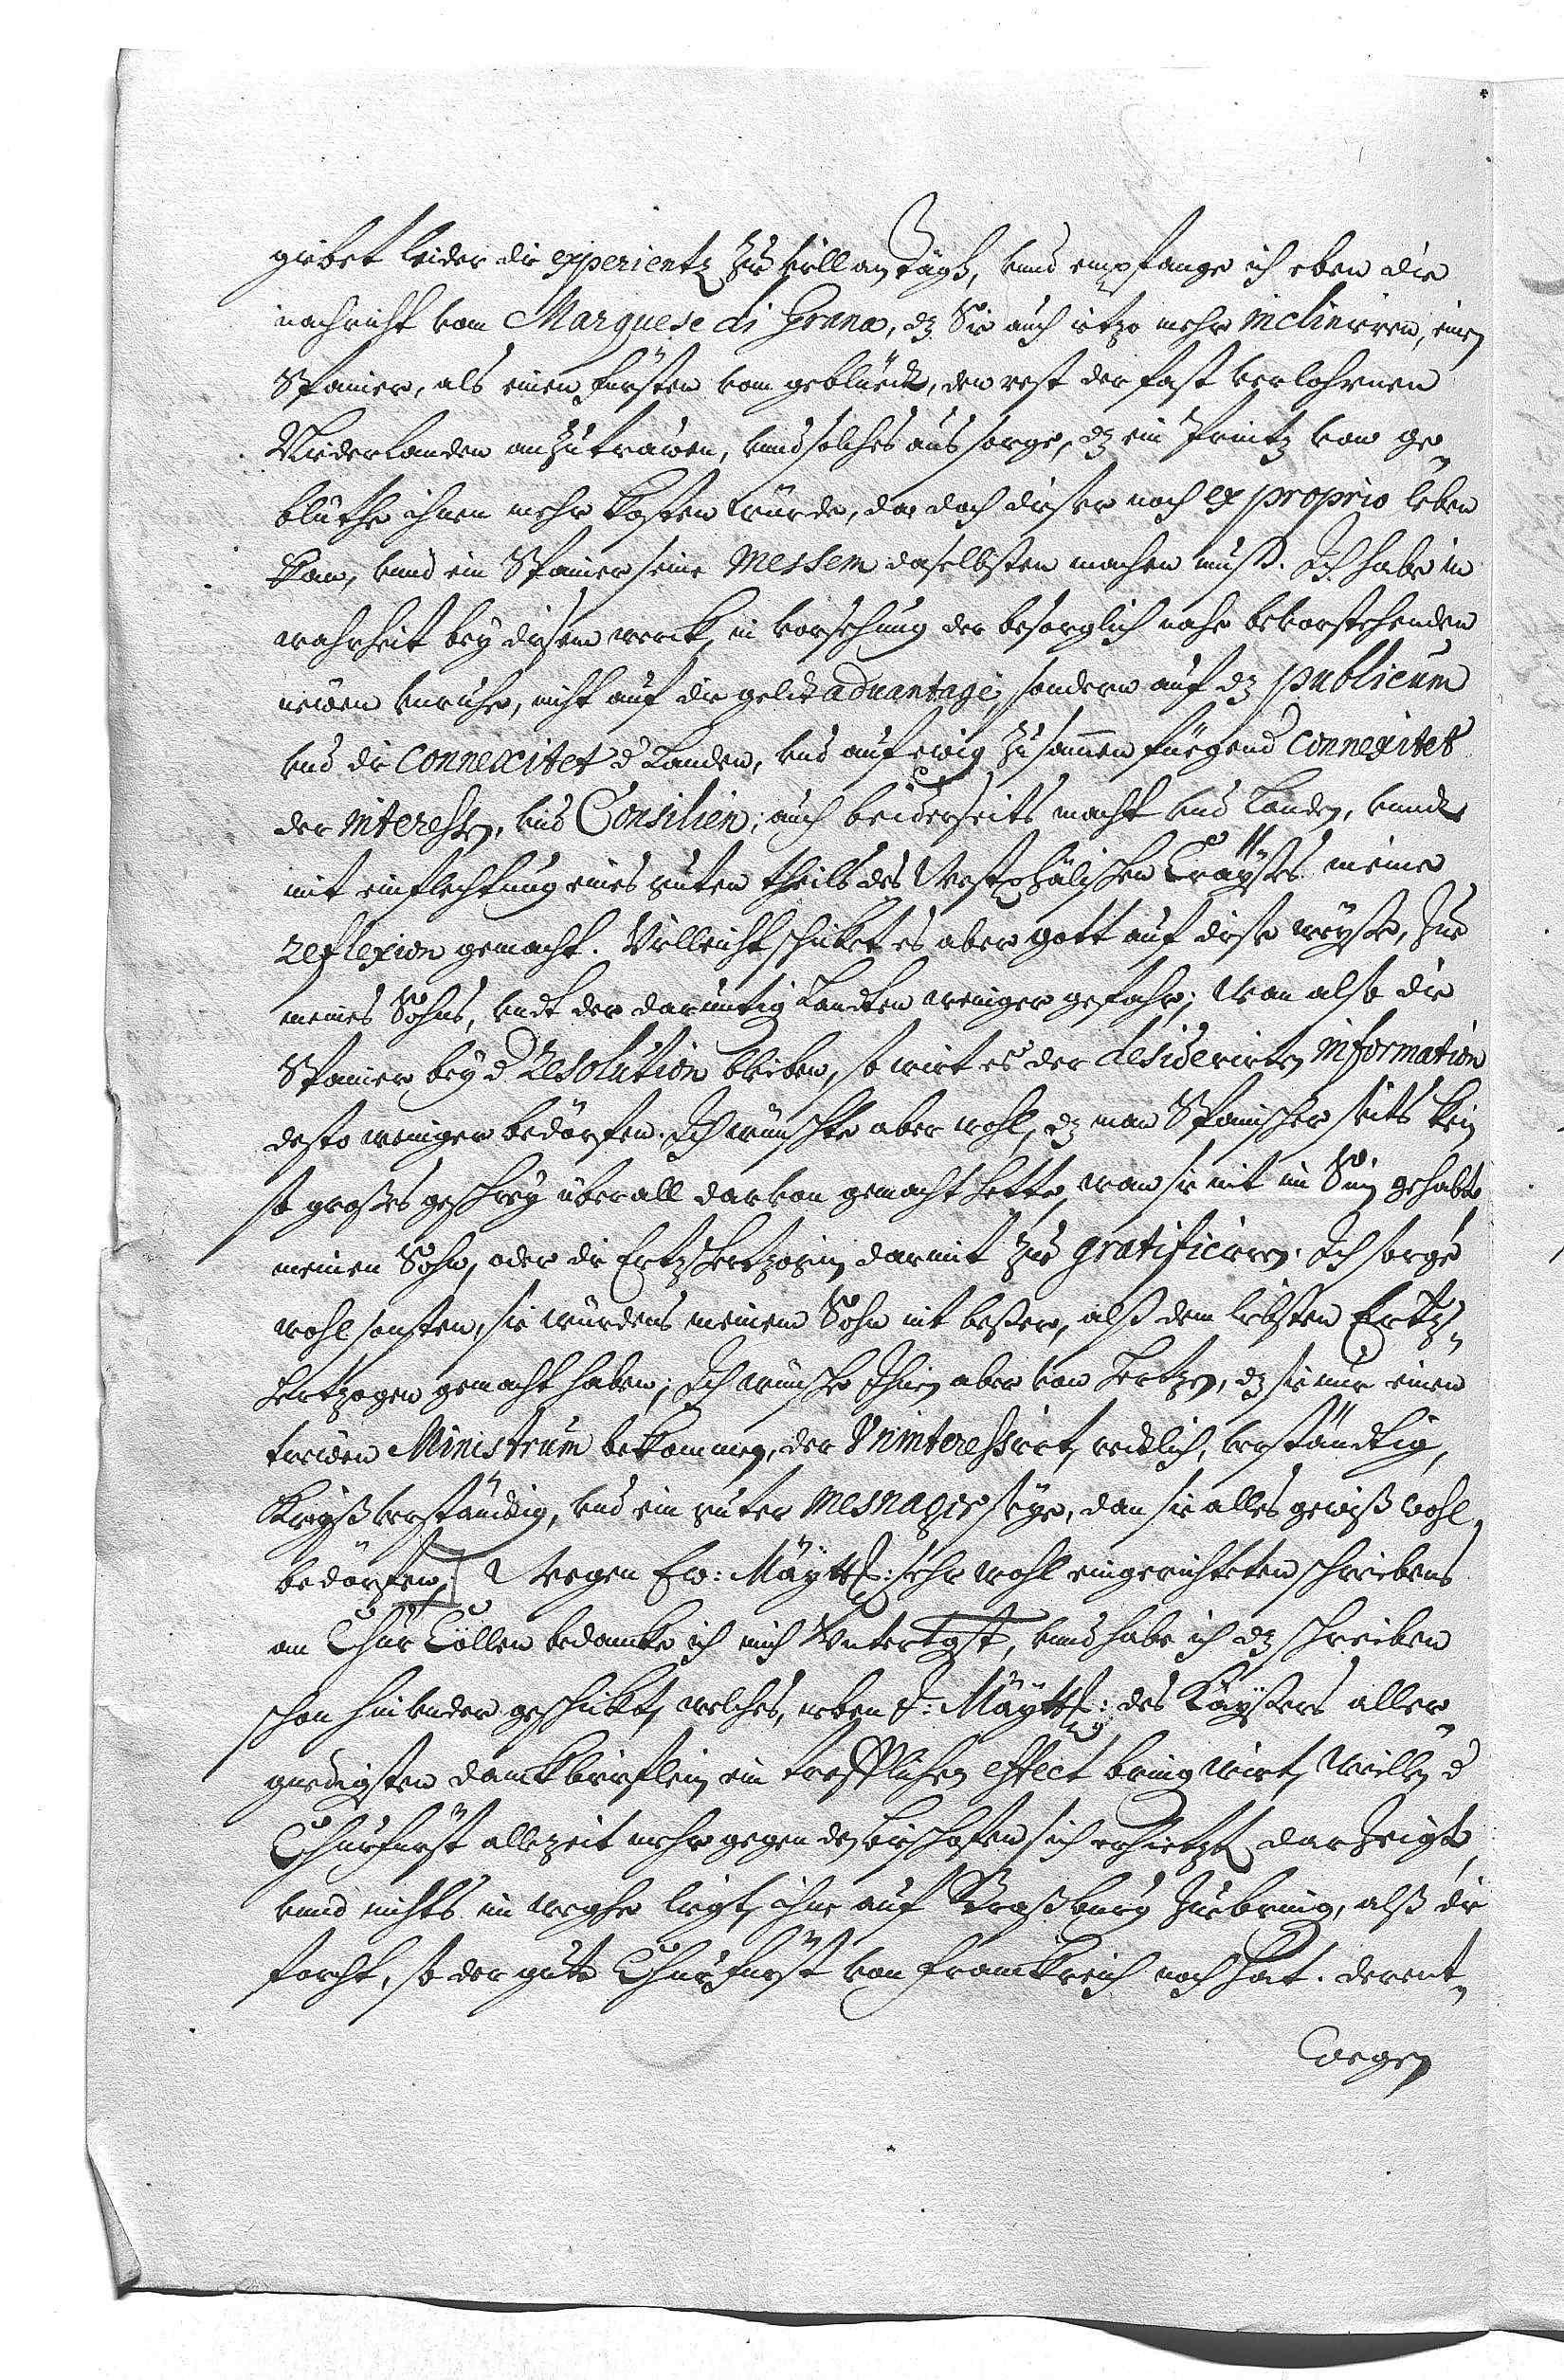 giebet leider die experientz zu vill an tagh, undt empfange ich eben die
nachricht vom Marquese di Grana, dz Sie auch ietzo mehr inclinieren, einen
Spanier, als einen fürsten vom geblüeth, den rest der fast verlohrnen
Niderlanden anzutrawen, undt solches aus sorge, dz ein Printz vom ge-
blüthe ihnen mehr kosten würde, da doch dieser noch ex proprio leben
kan, undt ein Spanier seine messem daselbsten machen muß. Ich habe in
wahrheit bey diesem werck, in vorsehung der besorglich nahe bevorstehenden
newen unruhe, nicht auf die geldt aduantage, sondern auf dz publicum
und die connexitet d Landen, und auf ewig zusammen fürgend connexitet
der interessen, und Consilien, auch beiderseits macht und Landen, undt
mit einflechtung eines guten theils des Westphälischen Crayßes meine
reflexion gemacht. Villeicht schicket es aber gott auf diese weyße, zue
meines Sohns, undt der daruntig Landten weniger gefahr; wan also die
Spanier bey d resolution bleiben, so wirt es der desiderirten information
desto weniger bedörfen. Ich wünschte aber wohl, dz man Spanischer seits kein
so großes geschrey überall darvon gemacht hette, wan sie nit im Sinn gehabt
meinen Sohn, oder die Ertzhertzogin darmit zue gratificiren. Ich sorge
wohl sonsten, sie würdens meinem Sohn nit besser, alß dem liebsten Ertz-
hertzogen gemacht haben; Ich wünsche Ihnen aber von hertzen, dz sie nur einen
trewen Ministrum bekommen, der Vninteressirt, redlich, verständtig,
Kriegßverständig, und ein guter mesnagier seye, dan sie alles gewiß wohl
bedörfen. Wegen Ew: Maytt: sehr wohl eingerichteten schreibens
an Chur Cöllen bedancke ich mich Untertgst, undt habe ich dz schreiben
schon hinunder geschickt, welches, neben S: Maytt: des Kaysers aller-
gnedigsten danckbrieflein ein trefflichen effect bring wirt, weillen d
Churfürst allezeit mehr gegen den bischofen sich erhietzt darzeigt,
undt nichts im weghe ligt, ihne auf Straßburg zue bring, alß die
forcht, so der gute Churfürst von Franckreich noch hat. derent-
wegen